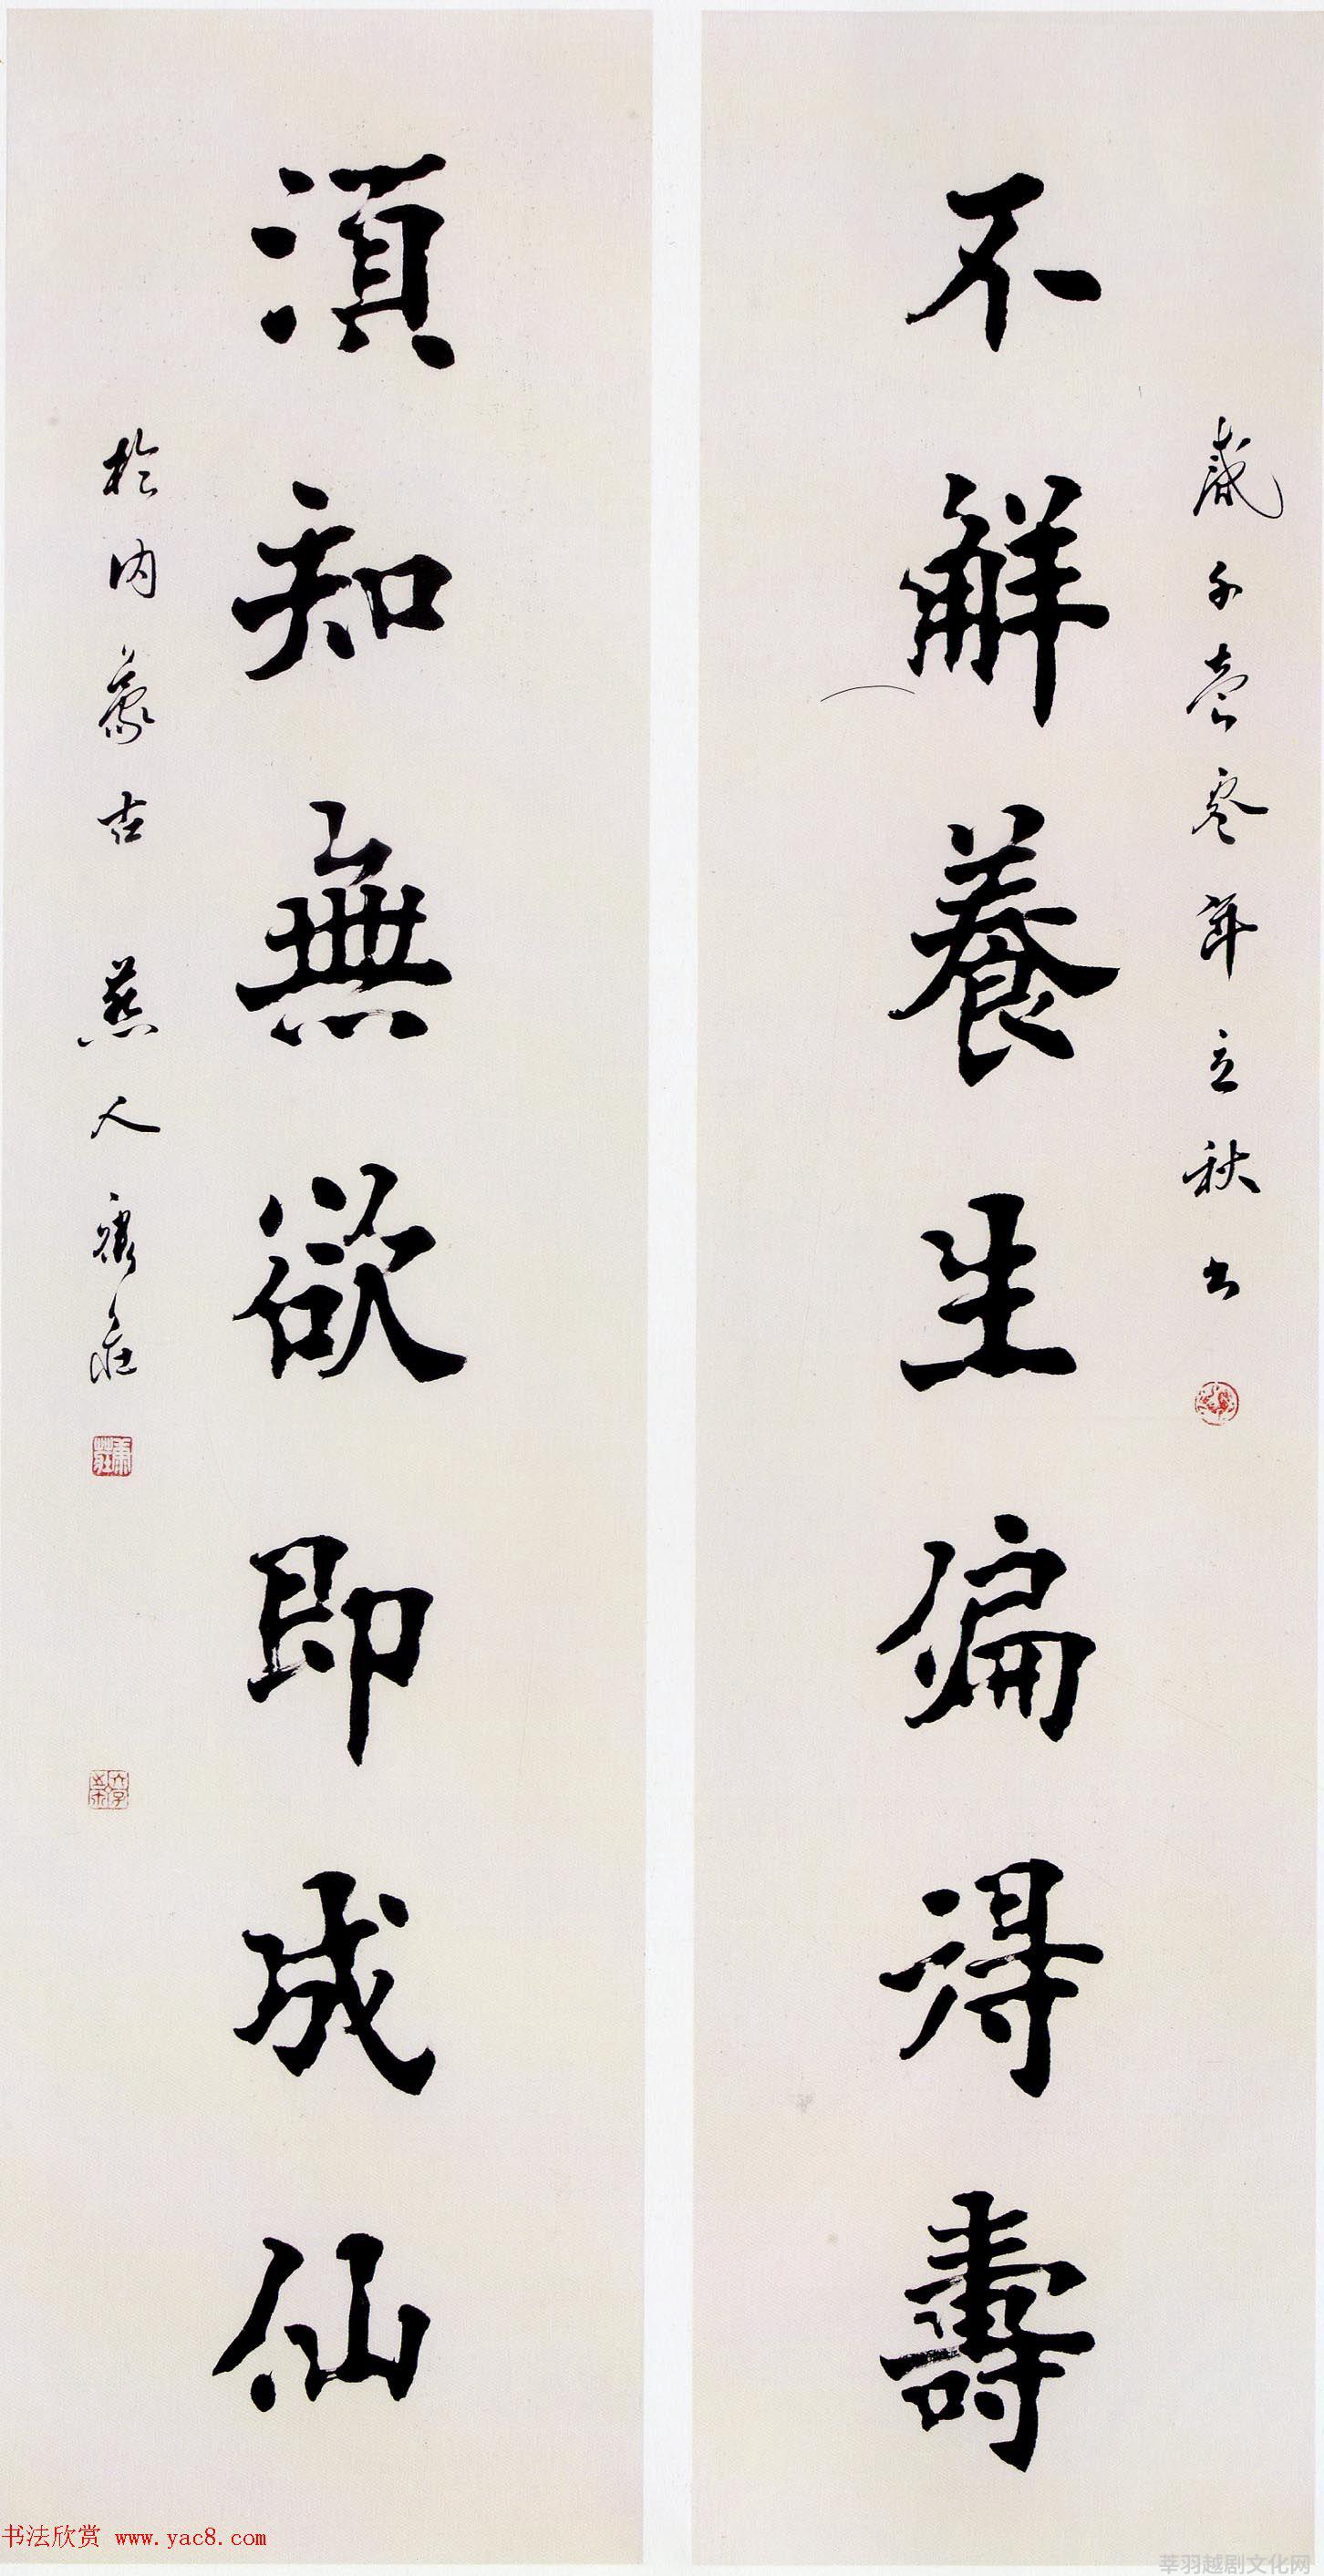 不解養生偏得壽
歲千壹零年立秋書
須知無欲即成仙
於內蒙古 燕人肅莊
书法欣赏 www.yac8.com
莘羽越剧文化网